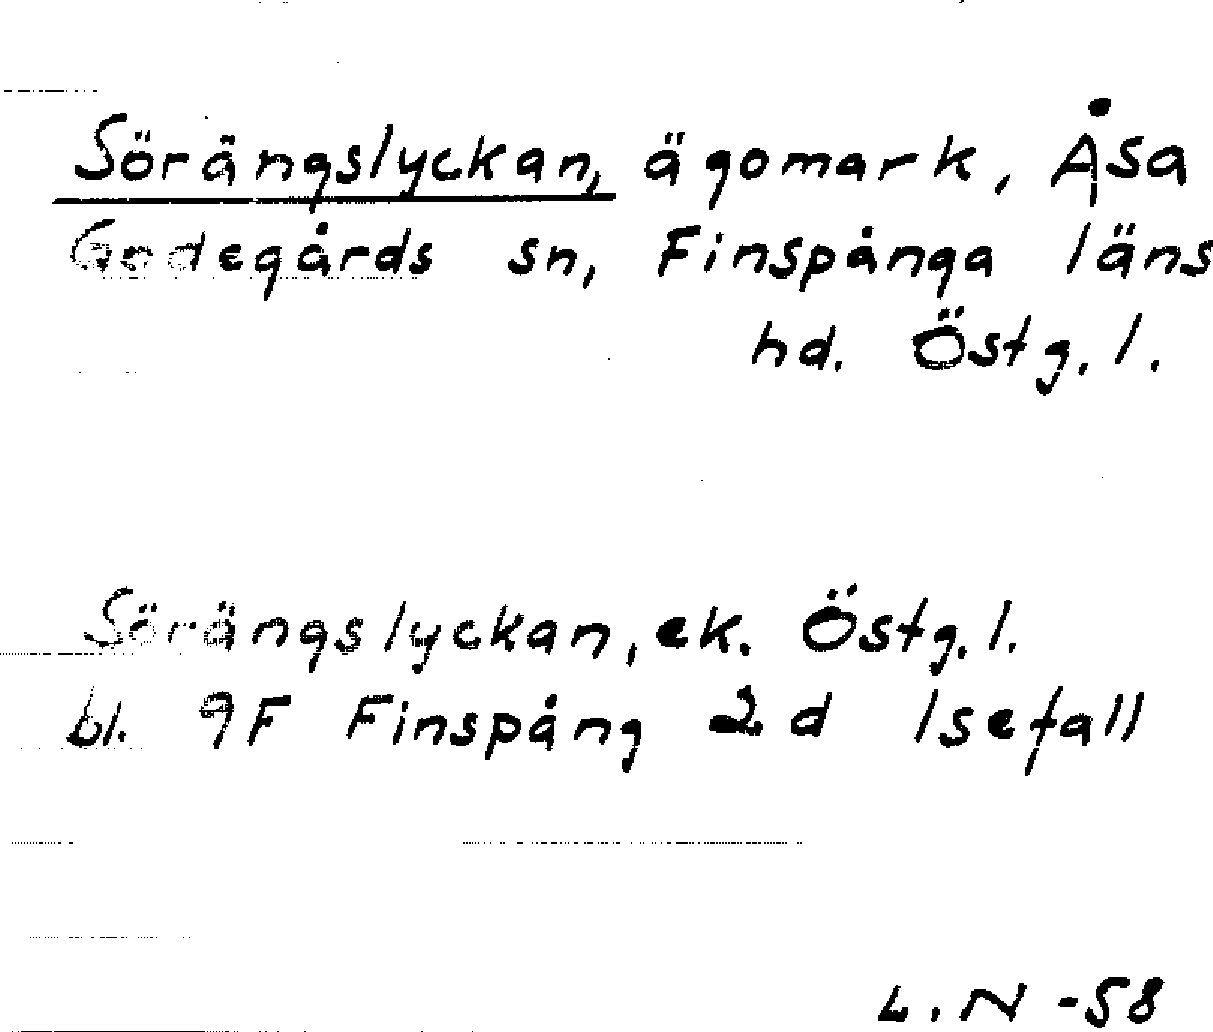 Sörängslyckan, ägomark, Åsa
Godegårds sn, Finspånga läns
hd. Östg. l.
Sörängslyckan, ek. Östg. l.
bl. 9F Finspång 2 d Isefall
L. N -58